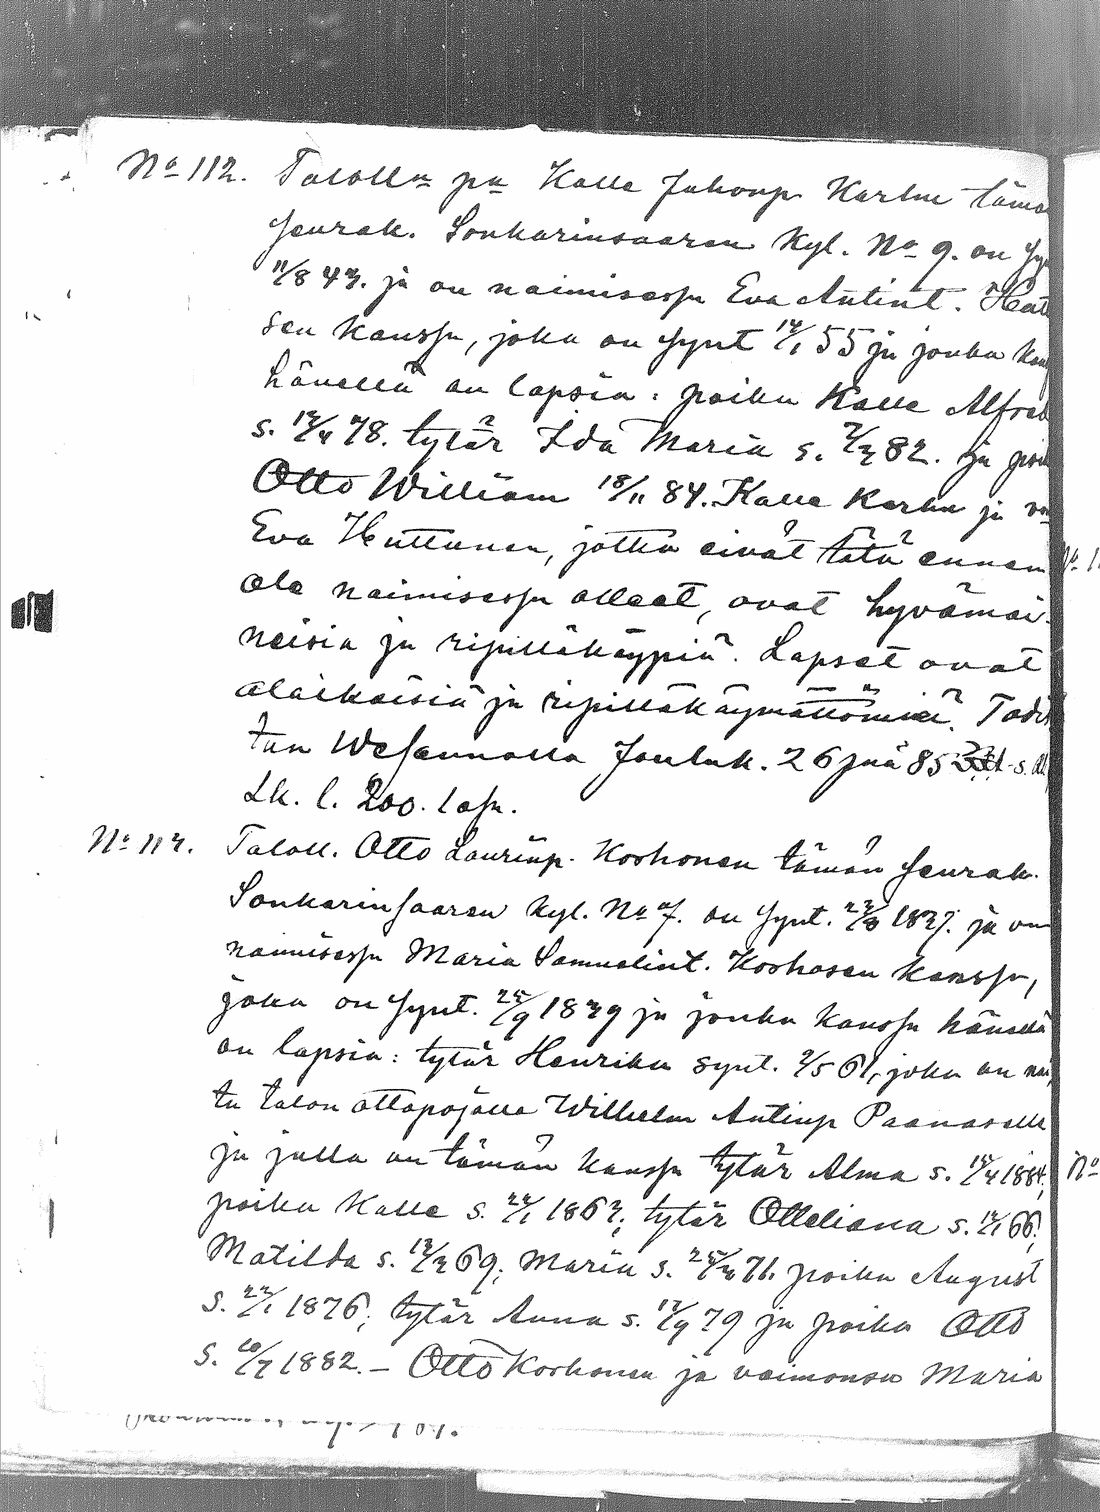 No 112. Talolln pn Kalle Juhonp. Karhu tämä
seurak. Sonkarinsaaren kyl. No 9. on sy
11/8 43. ja on naimisessa Eva Antint. Hut
sen kanssa, joka on synt 14/1 55 ja jonka kan
hänellä on lapsia: poika Kalle Alfred
s. 4 78. tytär Ida Maria s. 82. ja poik
Otto William 18/11 84. Kalle Karhu ja va
Eva Huttunen, jotka eivät tätä ennen
ole naimisessa olleet, ovat hyvämai-
neisia ja ripilläkäypiä. Lapset ovat
alaikäisiä ja ripilläkäymättömiä. Todis
tan Wesannolla Jouluk. 26 pnä 85 s.
Lk. l. 200. losn.
No 113. Taloll. Otto Laurinp. Korhonen tämän seurak.
Sonkarinsaaren kyl. No 7. on synt. 1837. ja on
naimisessa Maria Samuelint. Korhosen kanssa,
joka on synt. 25/9 1839 ja jonka kanssa hänellä
on lapsia: tytär Henrika synt. 2/5 61, joka on nai
tu talon ottopojalle Wilhelm Antinp Paanaselle
ja jolla on tämän kanssa tytär Alma s. 1884;
poika Kalle s. 1863; tytär Otteliana s. 66;
Matilda s. 69; Maria s. 71. poika August
s. 1876; tytär Anna s. 17/9 79 ja poika Otto
s. 1882. – Otto Korhonen ja vaimonsa Maria